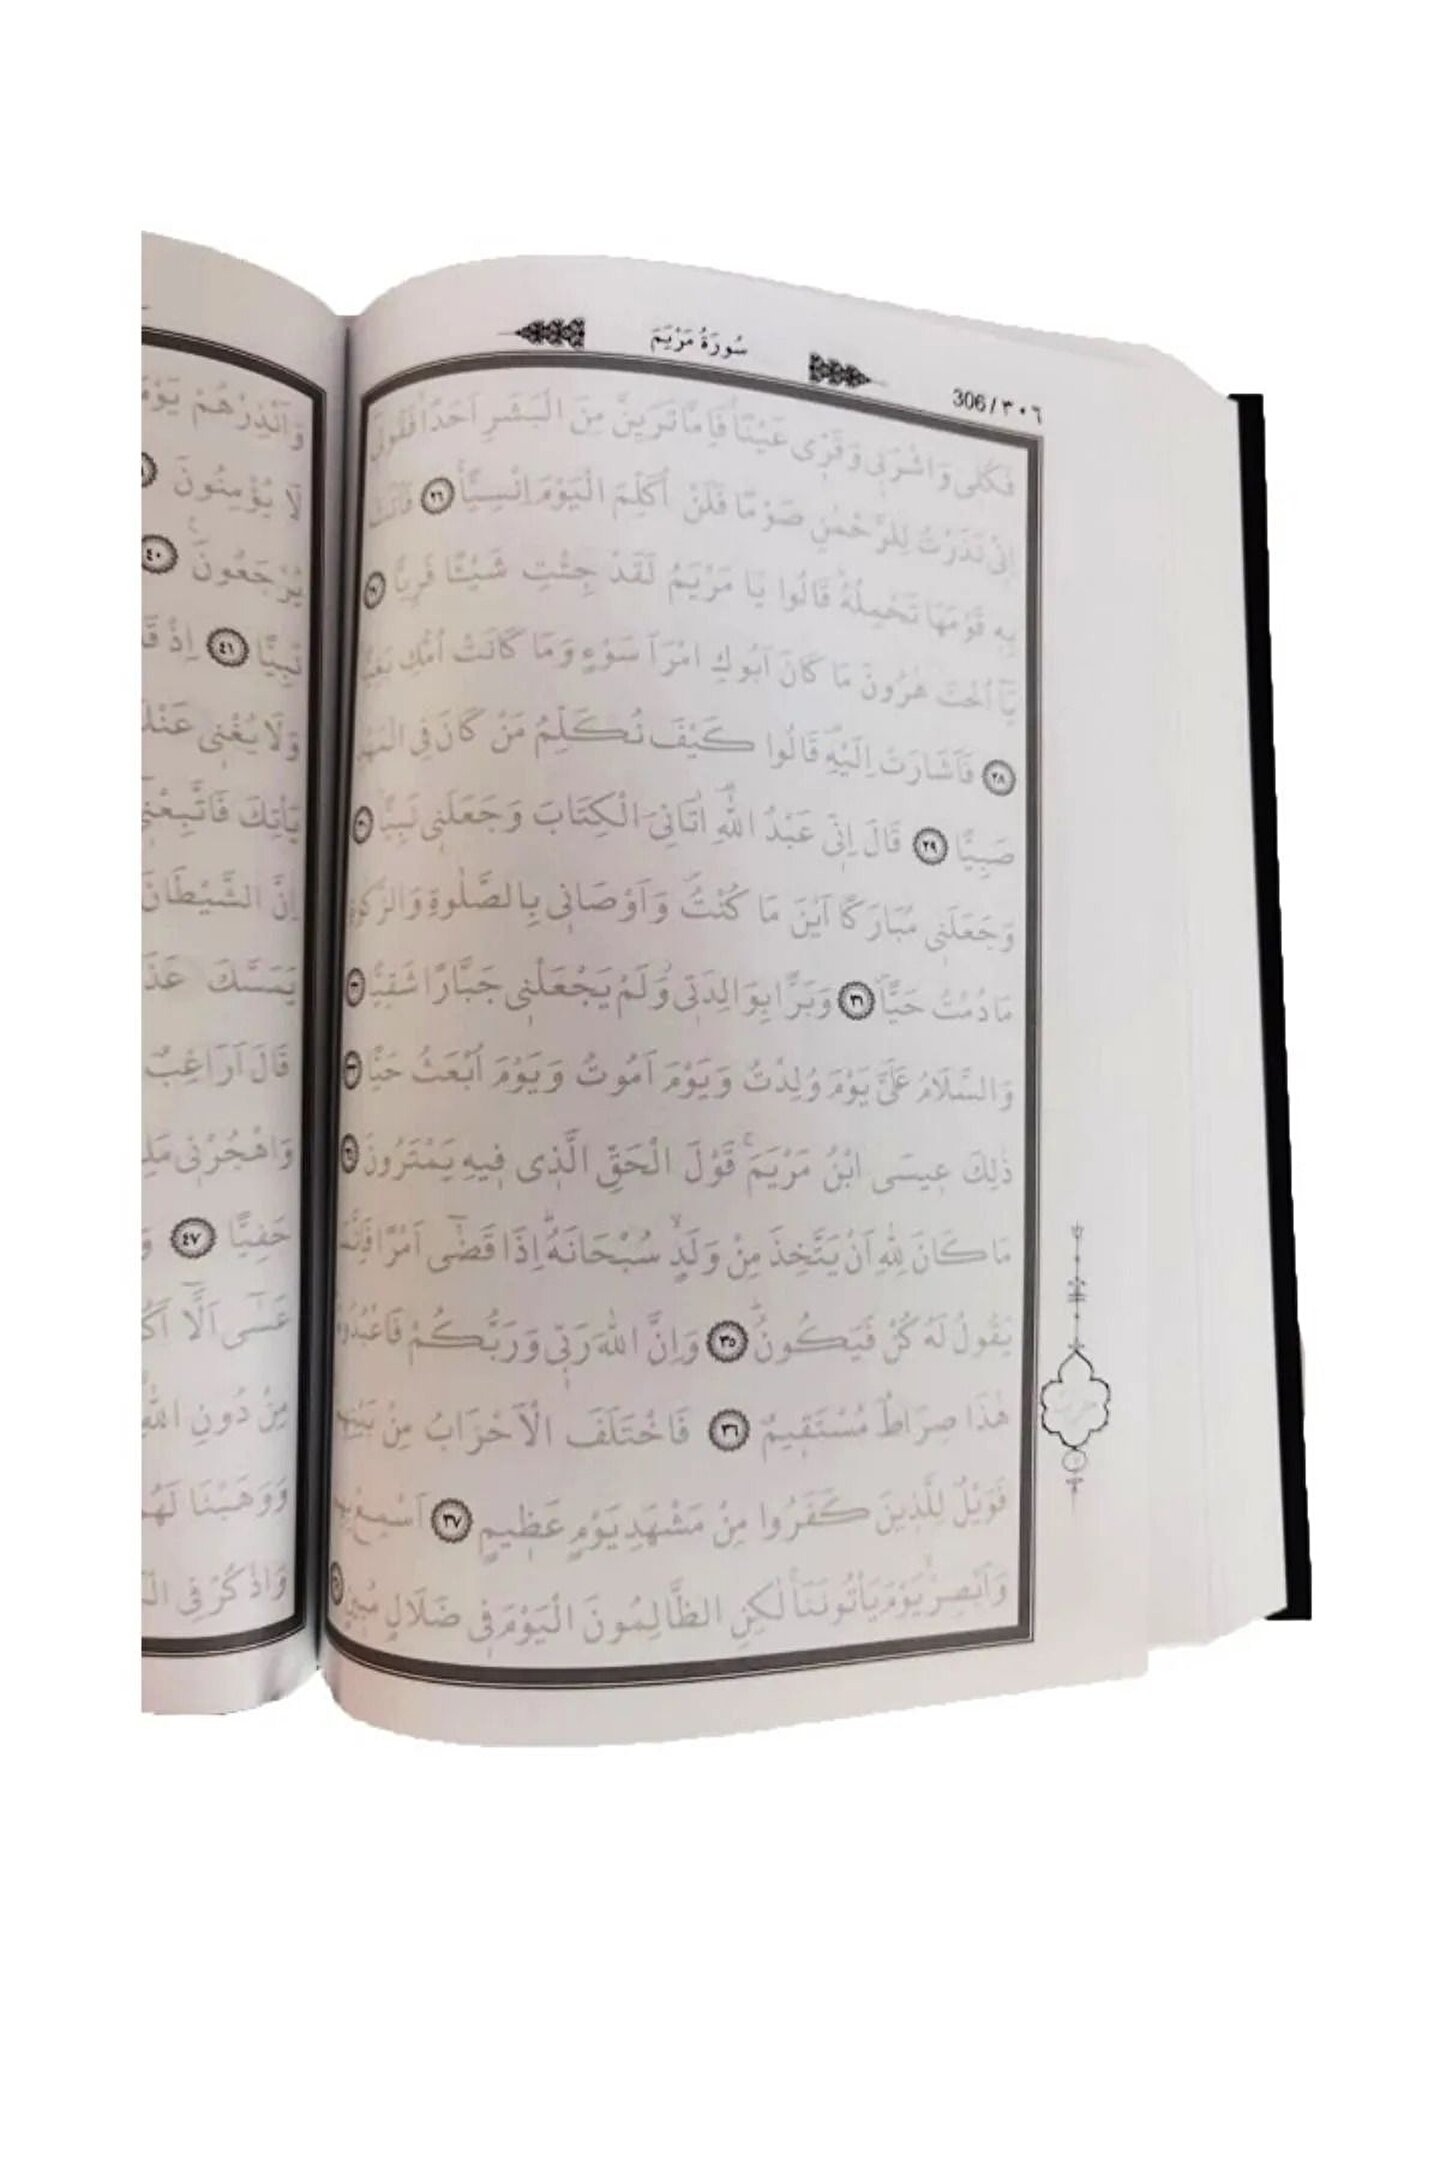 سُورَةُ مَرْيَمَ
306 / ٣٠٦
فَكُلِى وَاشْرَبِى وَقَرِّى عَيْنًاۚ فَاِمَّا تَرَيِنَّ مِنَ الْبَشَرِ اَحَدًاۙ فَقُولِىٓ
اِنِّى نَذَرْتُ لِلرَّحْمٰنِ صَوْمًا فَلَنْ اُكَلِّمَ الْيَوْمَ اِنْسِيًّاۚ ٢٦ فَاَتَتْ
بِهِ قَوْمَهَا تَحْمِلُهُۜ قَالُوا يَا مَرْيَمُ لَقَدْ جِئْتِ شَيْـًٔا فَرِيًّا ٢٧
يَٓا اُخْتَ هٰرُونَ مَا كَانَ اَبُوكِ امْرَاَ سَوْءٍ وَمَا كَانَتْ اُمُّكِ بَغِيًّاۚ
٢٨ فَاَشَارَتْ اِلَيْهِۜ قَالُوا كَيْفَ نُكَلِّمُ مَنْ كَانَ فِى الْمَهْدِ
صَبِيًّا ٢٩ قَالَ اِنِّى عَبْدُ اللّٰهِۜ اٰتَانِىَ الْكِتَابَ وَجَعَلَنِى نَبِيًّاۙ ٣٠
وَجَعَلَنِى مُبَارَكًا اَيْنَ مَا كُنْتُۖ وَاَوْصَانِى بِالصَّلٰوةِ وَالزَّكٰوةِ
مَا دُمْتُ حَيًّاۖ ٣١ وَبَرًّا بِوَالِدَتِىۘ وَلَمْ يَجْعَلْنِى جَبَّارًا شَقِيًّا ٣٢
وَالسَّلَامُ عَلَىَّ يَوْمَ وُلِدْتُ وَيَوْمَ اَمُوتُ وَيَوْمَ اُبْعَثُ حَيًّا ٣٣
ذٰلِكَ عِيسَى ابْنُ مَرْيَمَۚ قَوْلَ الْحَقِّ الَّذِى فِيهِ يَمْتَرُونَ ٣٤
مَا كَانَ لِلّٰهِ اَنْ يَتَّخِذَ مِنْ وَلَدٍۙ سُبْحَانَهُۜ اِذَا قَضٰٓى اَمْرًا فَاِنَّمَا
يَقُولُ لَهُ كُنْ فَيَكُونُۜ ٣٥ وَاِنَّ اللّٰهَ رَبِّى وَرَبُّكُمْ فَاعْبُدُوهُۜ
هٰذَا صِرَاطٌ مُسْتَقِيمٌ ٣٦ فَاخْتَلَفَ الْاَحْزَابُ مِنْ بَيْنِهِمْۚ
فَوَيْلٌ لِلَّذِينَ كَفَرُوا مِنْ مَشْهَدِ يَوْمٍ عَظِيمٍ ٣٧ اَسْمِعْ بِهِمْ
وَاَبْصِرْۙ يَوْمَ يَأْتُونَنَا لٰكِنِ الظَّالِمُونَ الْيَوْمَ فِى ضَلَالٍ مُبِينٍ ٣٨
وَاَنْذِرْهُمْ يَوْمَ
لَا يُؤْمِنُونَ
يُرْجَعُونَ۟ ٤٠
نَبِيًّا ٤١ اِذْ قَا
وَلَا يُغْنِى عَنْكَ
يَأْتِكَ فَاتَّبِعْنِٓى
اِنَّ الشَّيْطَانَ
يَمَسَّكَ عَذَ
قَالَ اَرَاغِبٌ
وَاهْجُرْنِى مَلِ
حَفِيًّا ٤٧ وَ
عَسٰٓى اَلَّٓا اَكُ
مِنْ دُونِ اللّٰهِ
وَوَهَبْنَا لَهُ
وَاذْكُرْ فِى الْ